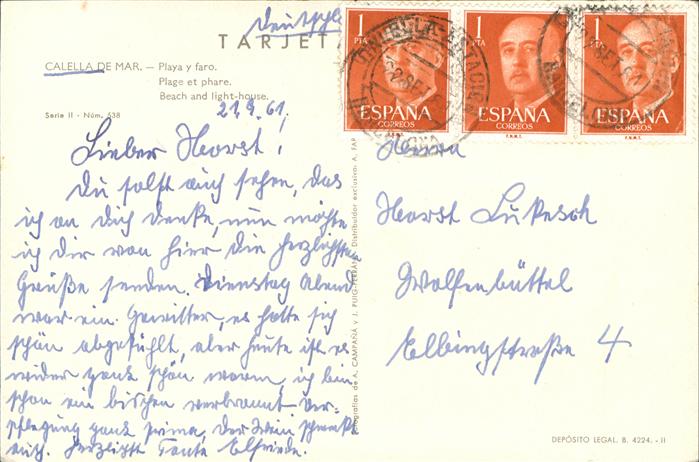 Deutschl
TARJETA
CALELLA DE MAR. — Playa y faro.
Plage et phare.
Beach and light-house.
Serie II - Núm. 638
21.9.61.
Lieber Horst!
Du sollst auch sehen, das
ich an Dich denke, nun möchte
ich dir von hier die herzlichsten
Grüße senden. Dienstag Abend
war ein Gewitter, es hatte sich
schön abgekühlt, aber heute ist es
wider ganz schön warm, ich bin
schon ein bischen verbrannt Ver-
pflegung ganz prima, der Wein schmeckt
auch. Herzlichst Tante Elfriede.
Fotografías de A. CAMPAÑÁ y J. PUIG-FERRÁN. Distribuidor exclusivo: A. FAR
1 PTA
ESPAÑA
CORREOS
F.N.M.T.
1 PTA
ESPAÑA
CORREOS
F.N.M.T.
1 PTA
ESPAÑA
CORREOS
F.N.M.T.
Herrn
Horst Lukesch
Wolfenbüttel
Elbingstraße 4
DEPÓSITO LEGAL. B. 4224. - II